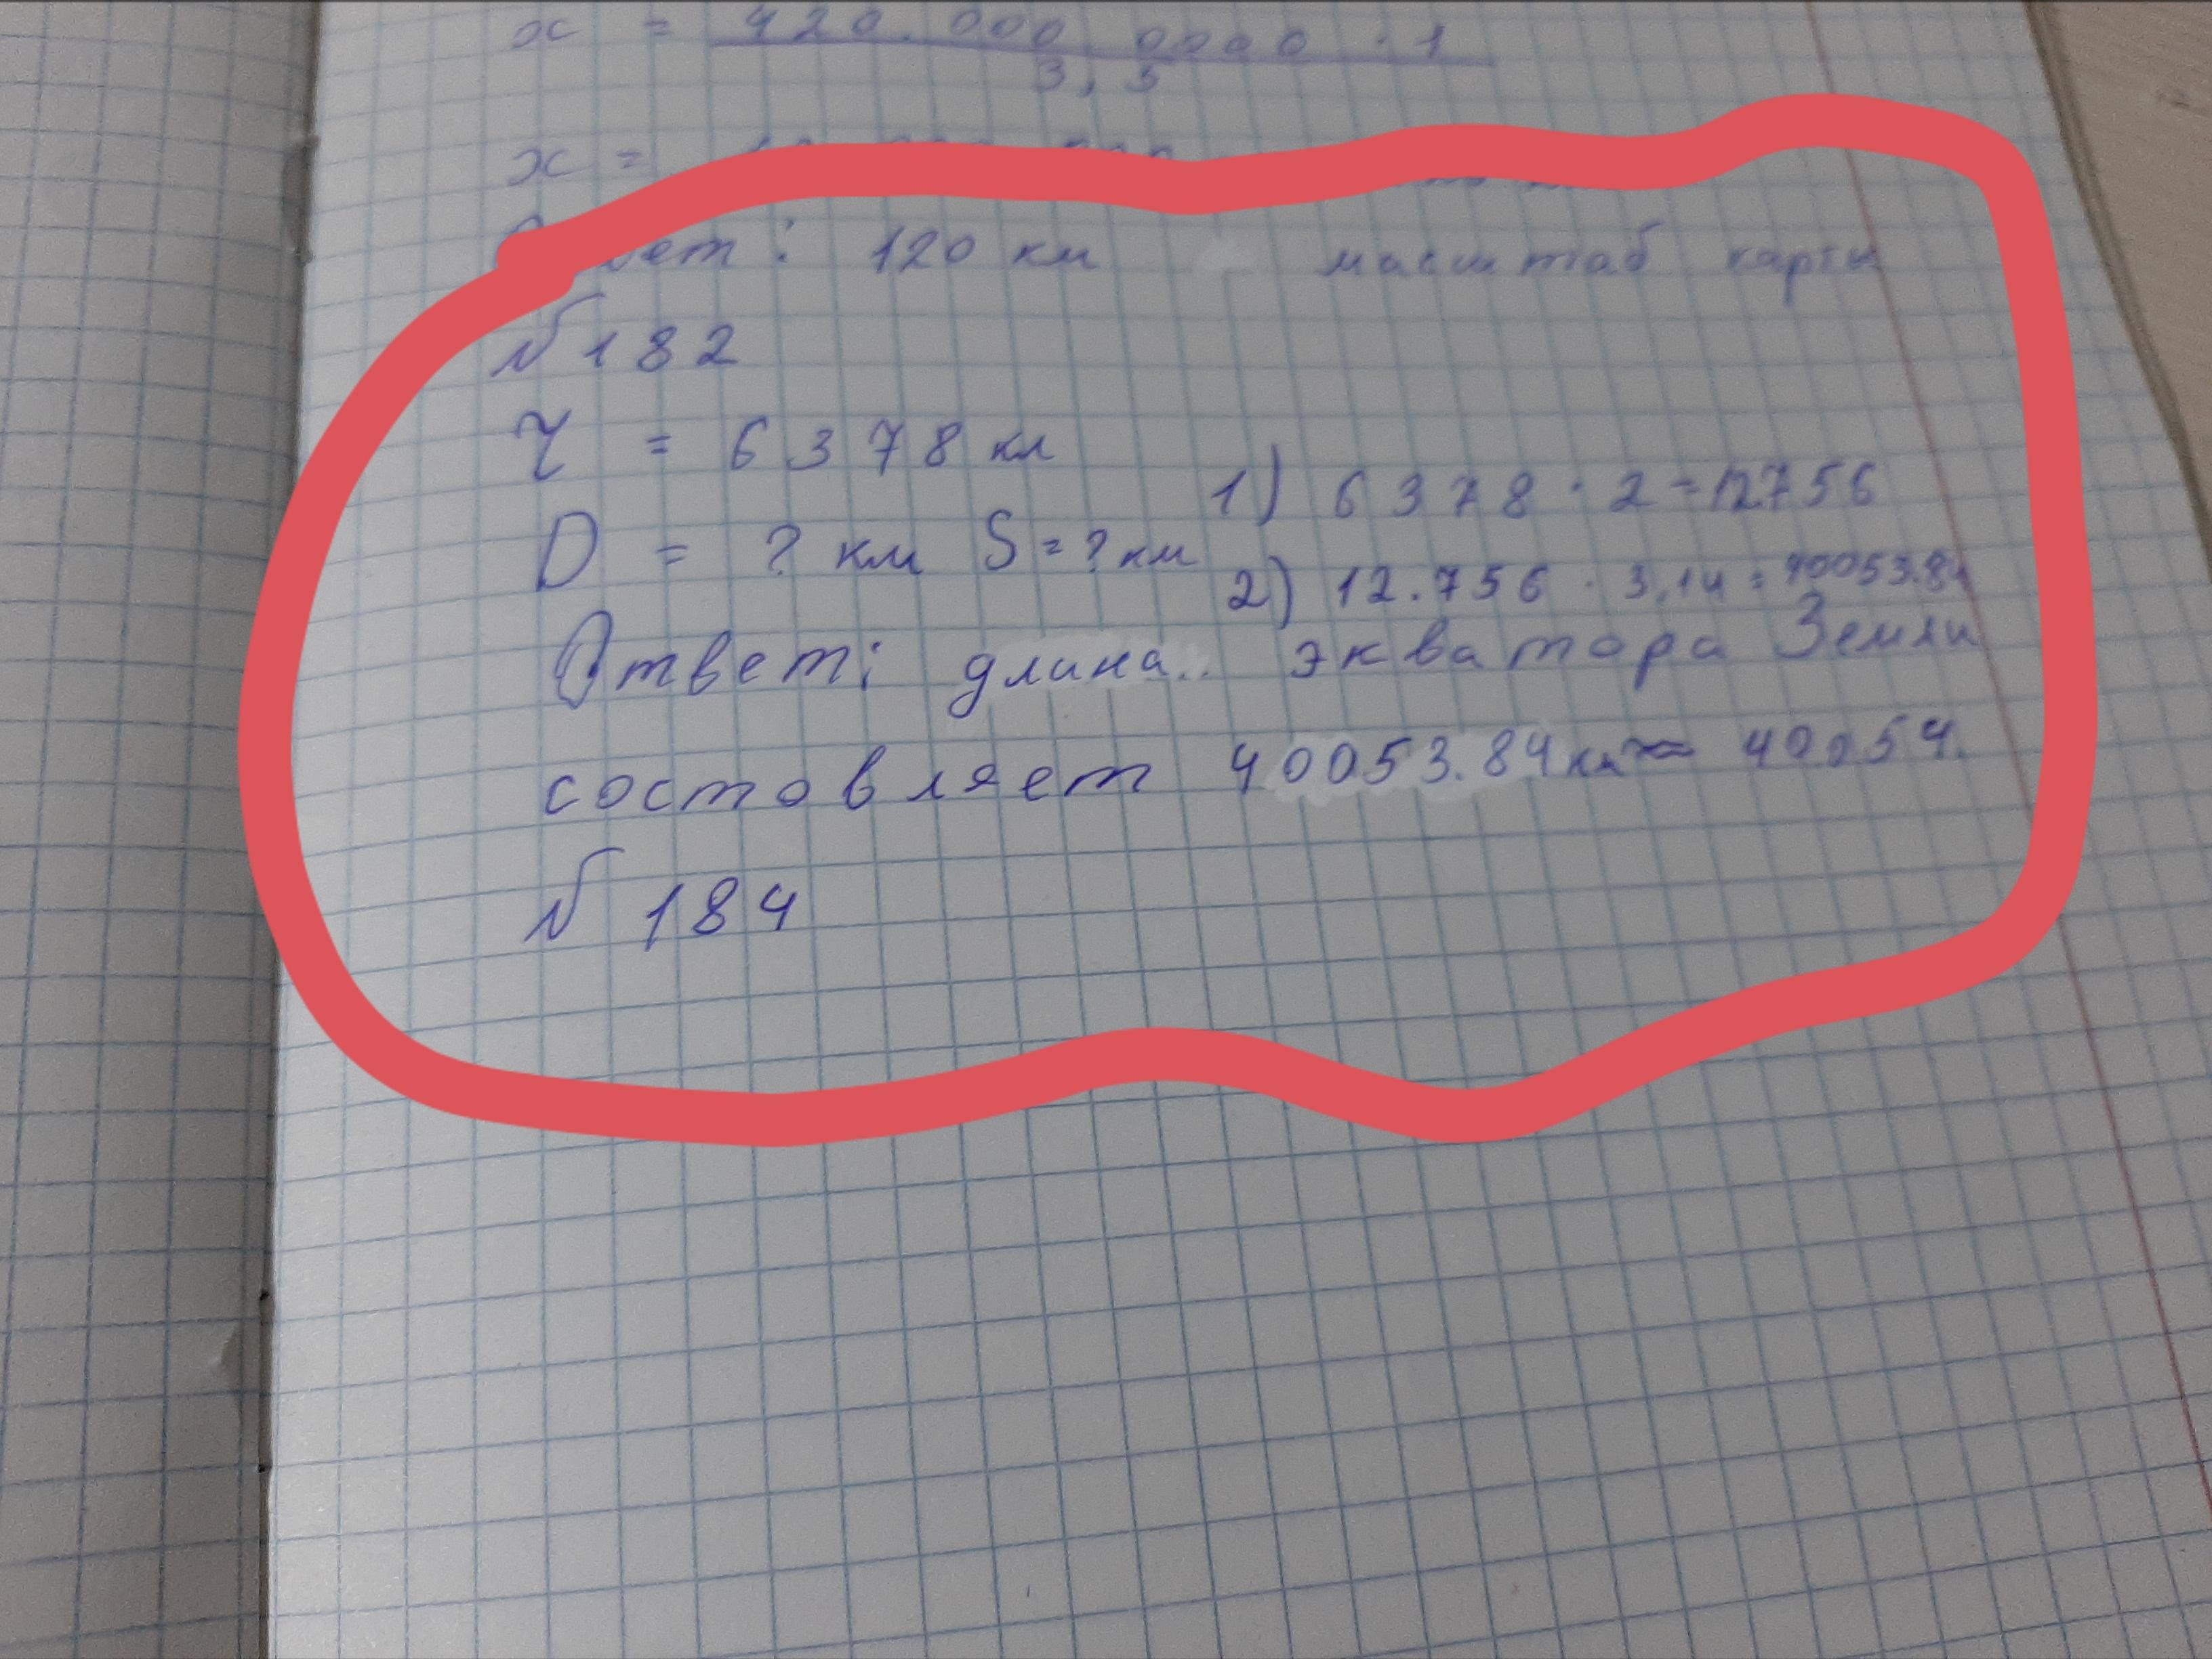 x = 420.000 0000 · 1
3,5
x =
Ответ: 120 км масштаб карты
№ 182
r = 6378 км
1) 6378 · 2 = 12756
D = ? км S = ? км
2) 12.756 · 3,14 = 40053.84
Ответ: длина.. экватора Земли
составляет 40053.84 км ≈ 40054.
№ 184